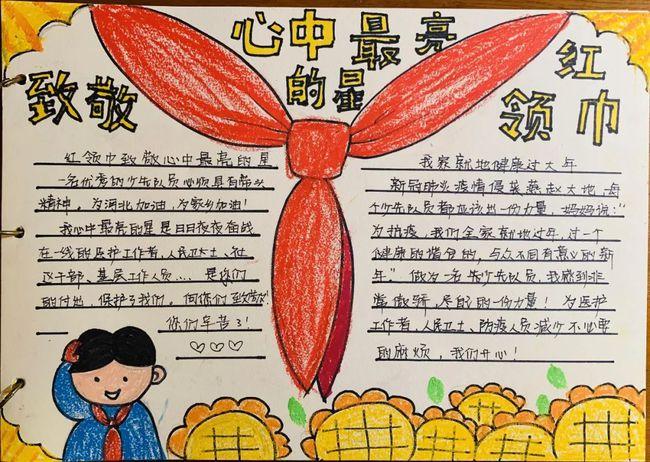 心中最亮
的星
致敬
红
领巾
红领巾致敬心中最亮的星
一名优秀的少先队员必须具有带头
精神。为河北加油,为家乡加油!
我心中最亮的星是日日夜夜奋战
在一线的医护工作者,人民卫士、社
区干部、基层工作人员……是你们
的付出,保护了我们。向你们致敬!
你们辛苦了!
我家就地健康过大年
新冠肺炎疫情侵袭燕赵大地,每
个少先队员都应该出一份力量,妈妈说:“
为抗疫,我们全家就地过年,过一个
健康的节日的,与众不同有意义的新
年”做为一名少先队员,我感到非
常骄傲,尽自己的一份力量!为医护
工作者,人民卫士、防疫人员减少不必要
的麻烦,我们开心!